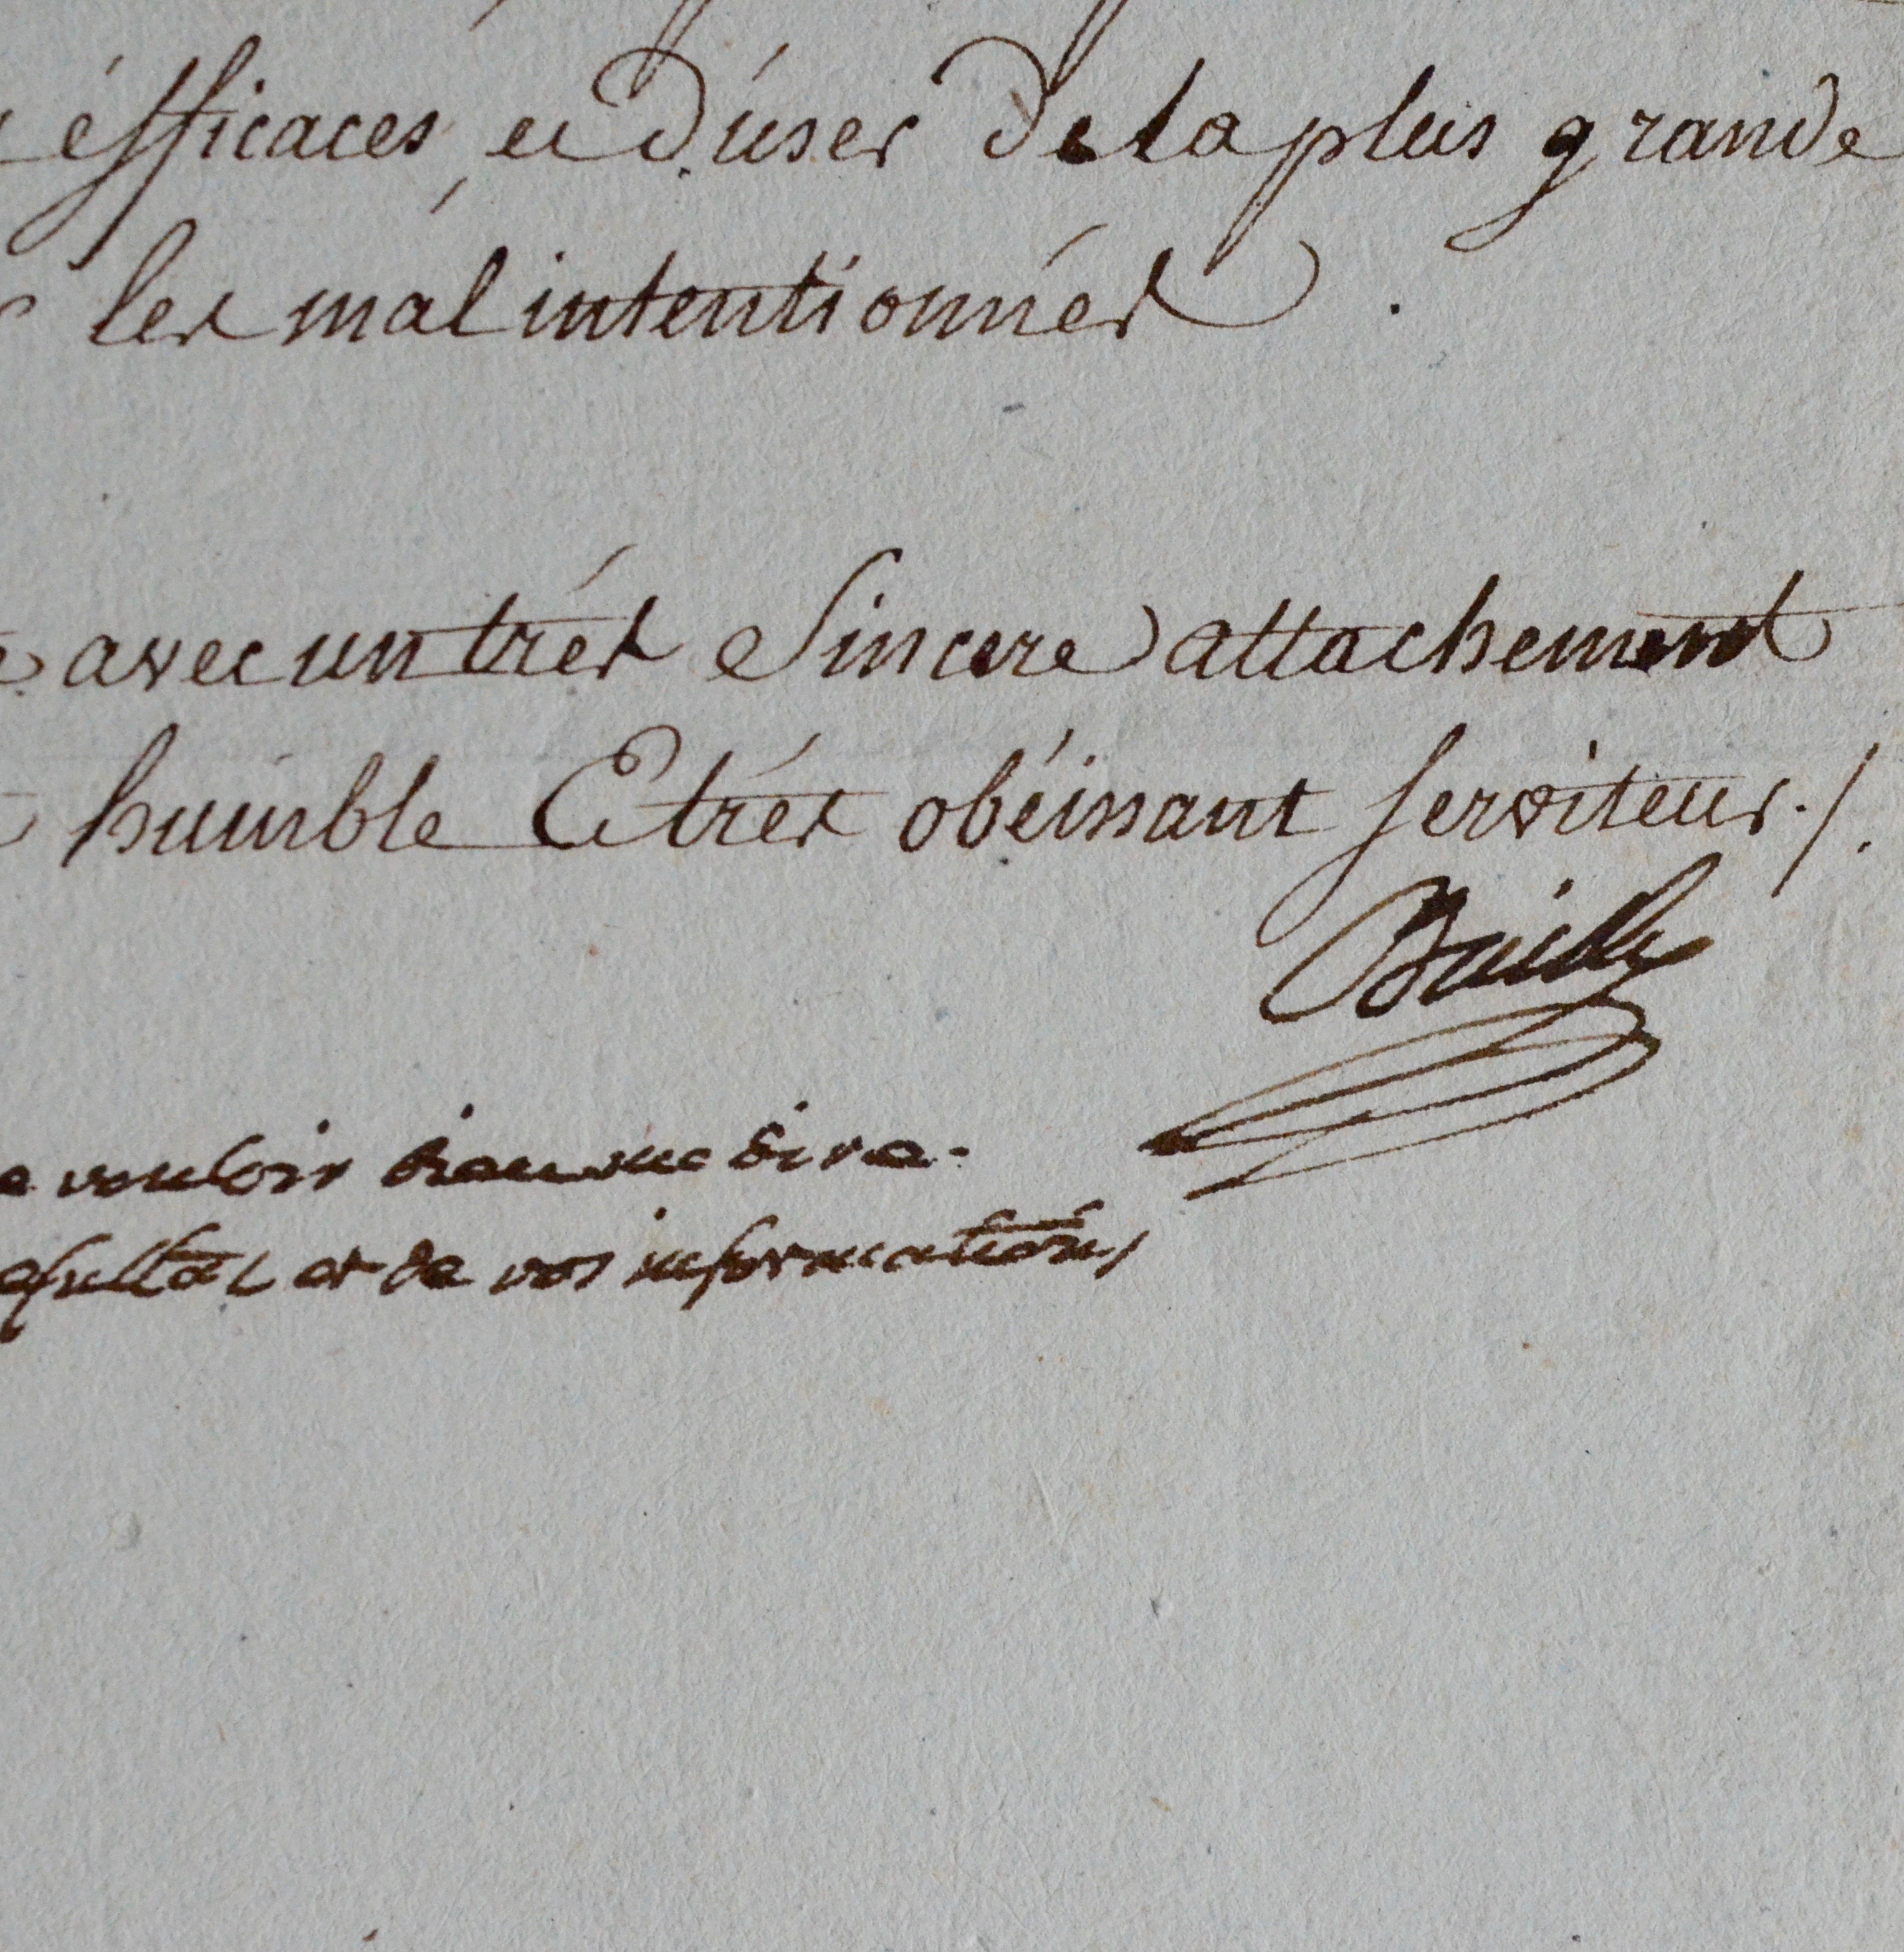 éfficaces, et d'user de la plus grande
les mal intentionnés.
avec un trés Sincere attachement
humble Et trés obéissant serviteur./.
Bailly
vouloir bien me dire
et de vos informations